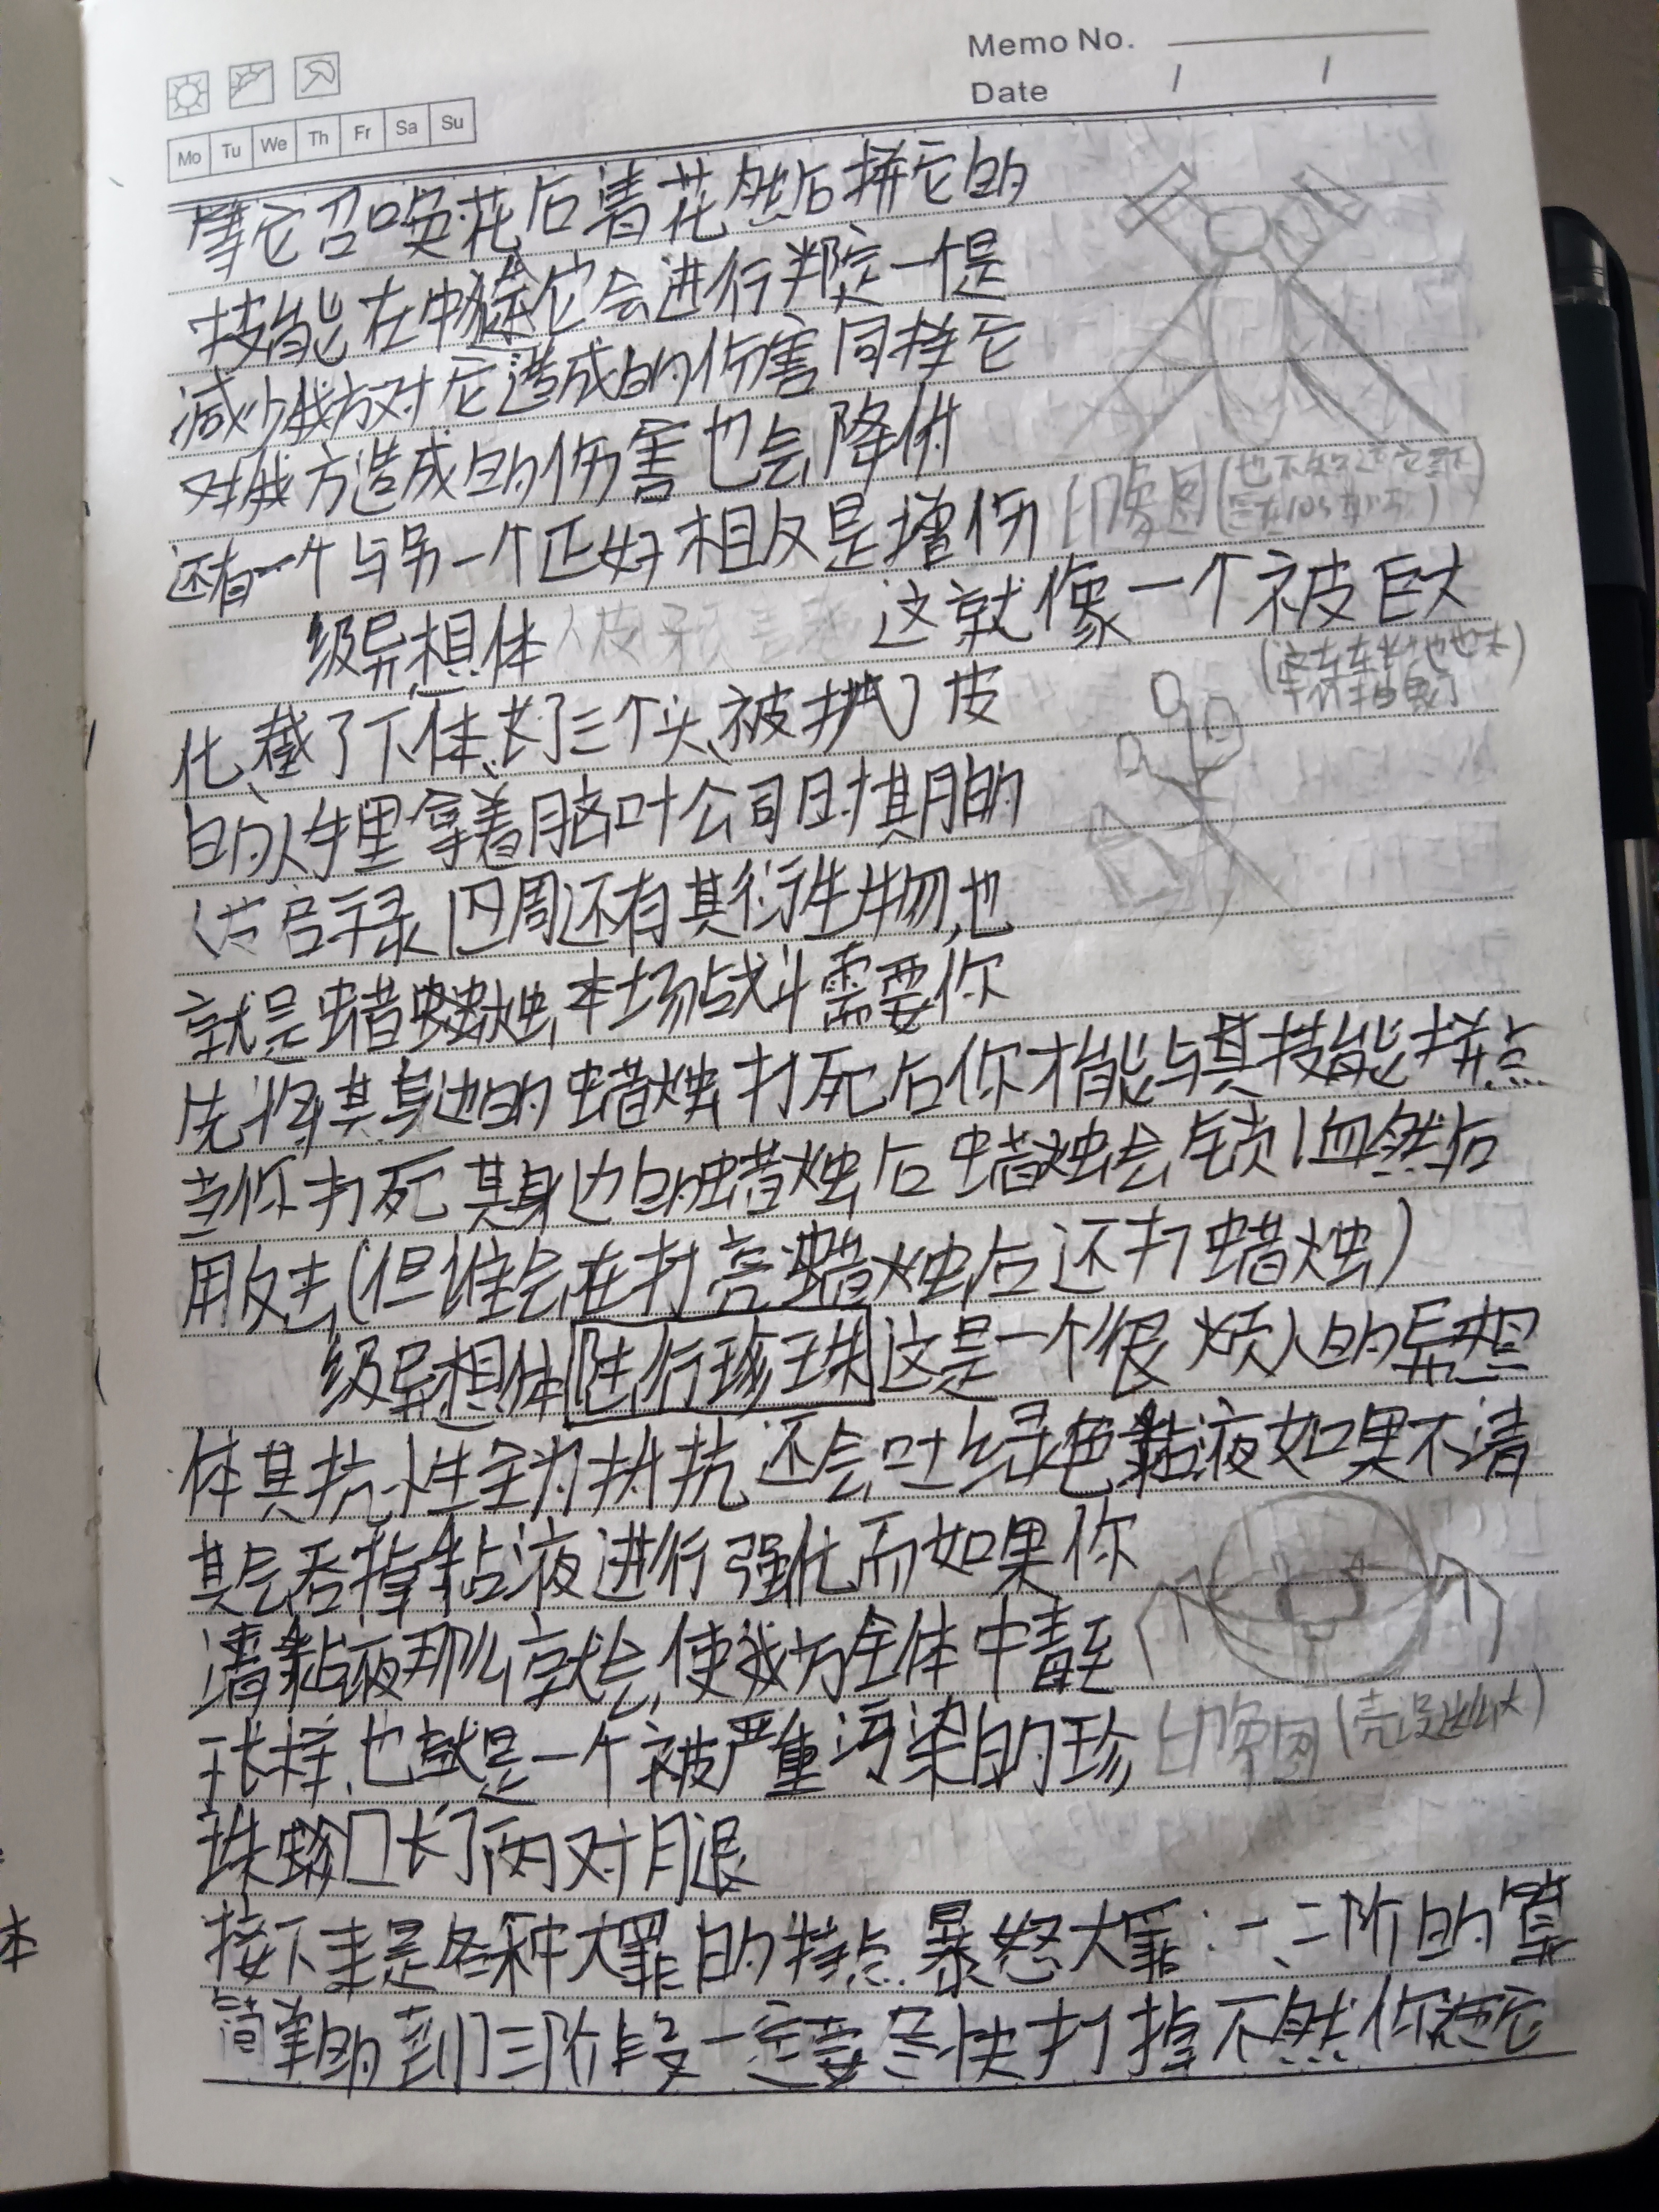 Memo No.
Date / /
Mo Tu We Th Fr Sa Su
等它召唤花后清花然后拼它的
技能在中途它会进行判定一个是
减少我方对它造成的伤害同样它
对我方造成的伤害也会降低
还有一个与另一个正好相反是增伤
印象图(也不知这它
级异想体 人皮 这就像一个被巨大
化、截了下体、长了三个头、被扒了皮
的人手里拿着脑叶公司时期的
启示录四周还有其衍生物,也
就是蜡烛,本场战斗需要你
先将其身边的蜡烛打死后你才能与其技能拼点
当你打死其身边的蜡烛后蜡烛会锁1血然后
用反击(但谁会在打亮蜡烛后还打蜡烛)
级异想体陆行珍珠这是一个很烦人的异想
体其抗性全为抵抗还会吐绿色黏液如果不清
其会吞掉黏液进行强化而如果你
清黏液那么就会使我方全体中毒至
于长样、也就是一个被严重污染的珍
印象图(壳没这么大)
珠蚌长了两对腿
接下来是各种大罪的特点.暴怒大罪:一、二阶的算
简单的到了三阶段一定要尽快打掉不然你被它